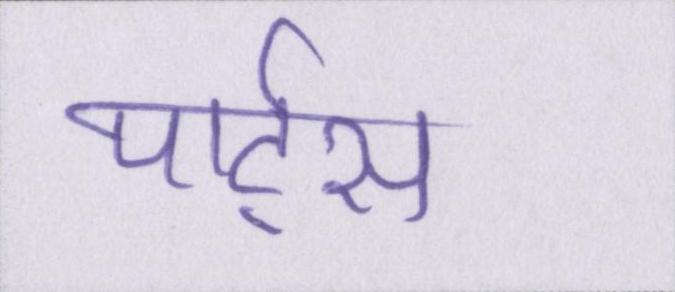 पार्ट्स